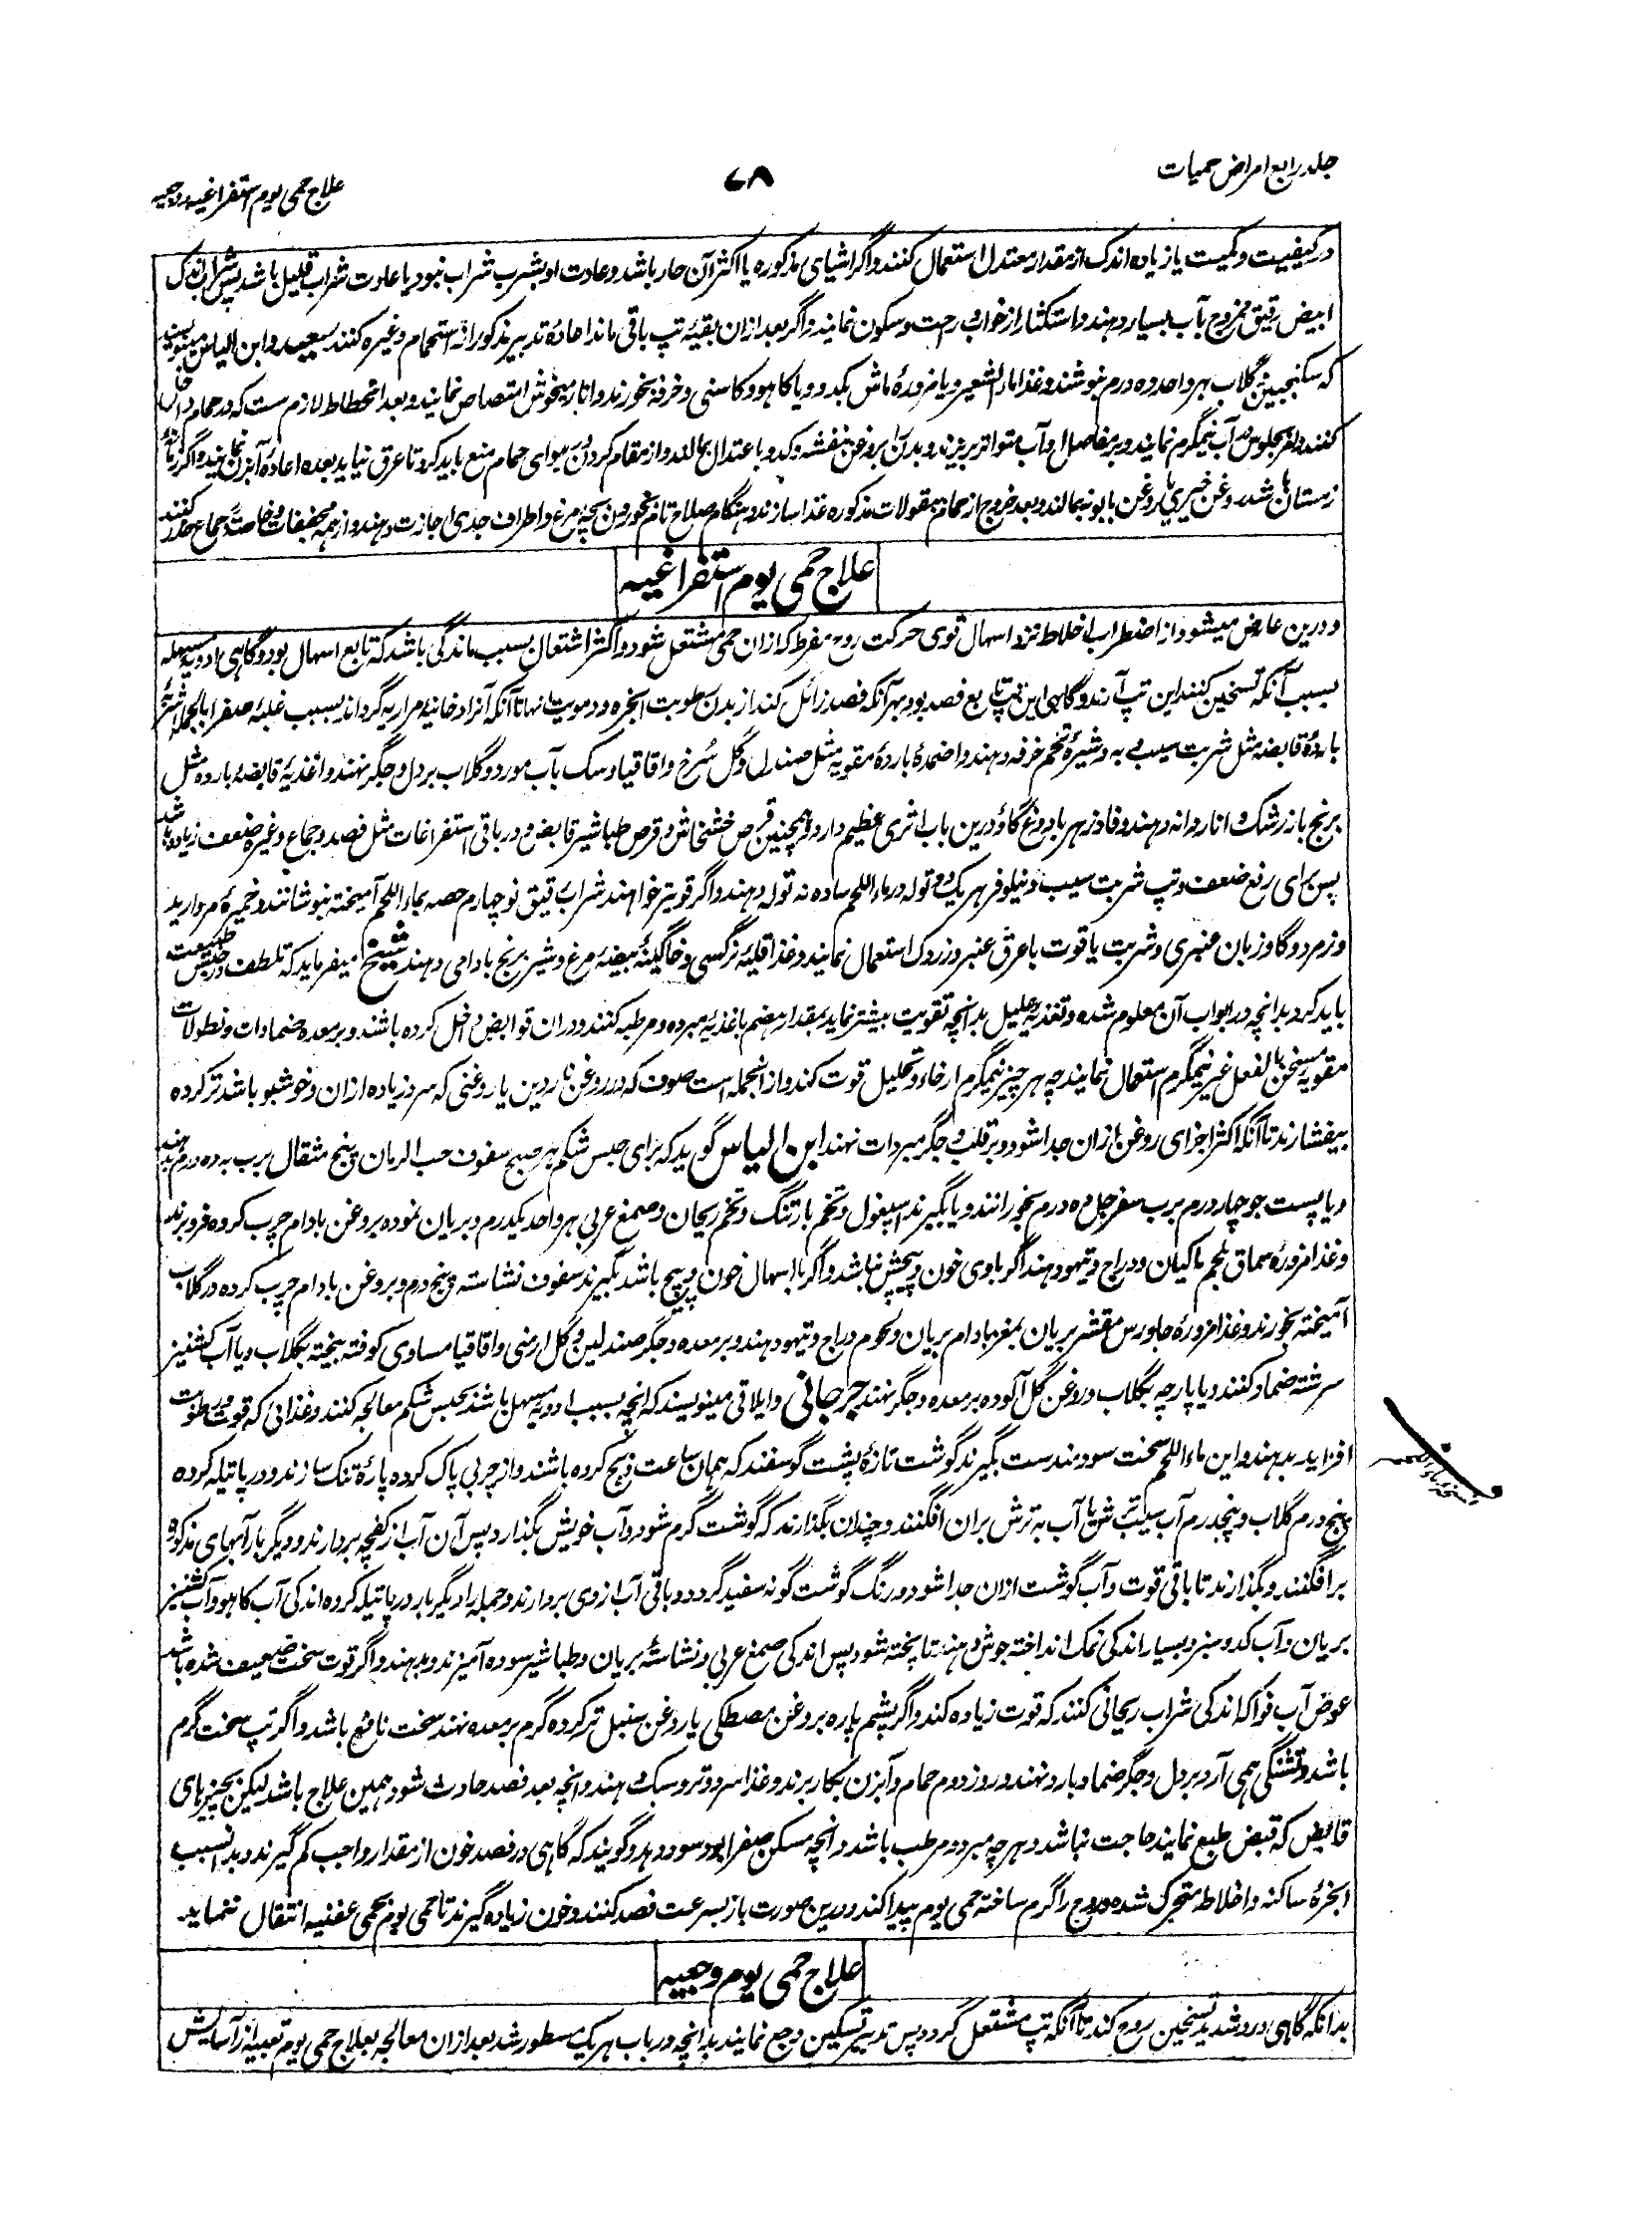 جلد رابع امراض حمیات
۷۸
علاج حمی یوم استفراغیه و وجعیه
در کیفیت و کمیت یا زیاده اندک از مقدار معتدل استعمال کنند و اگر اشیای مذکوره یا اکثر آن حار باشد و عادت او بشرب شراب نبود یا عادت شراب قلیل باشد پس شراب اندک
ابیض رقیق ممزوج بآب بسیار دهند و استکثار از خواب و راحت و سکون نمایند و اگر بعد ازان بقیهٔ تپ باقی ماند اعادهٔ تدبیر مذکور از استحمام و غیره کنند سعید و ابن الیاس مینویسند
که سکنجبین بگلاب هر واحد ده درم بنوشند و غذا ماء الشعیر و یا مزورهٔ ماش بکدو و یا کاهو و کاسنی و خرفه بخورند و انار میخوش امتصاص نمایند و بعد انحطاط لازم ست که در حمام داخل
کنند و امر بجلوس در آب نیمگرم نمایند و بر مفاصل او آب متواتر بریزند و بدن او بروغن بنفشه و کدو باعتدال بمالند و از مقام کردن در هوای حمام منع باید کرد تا عرق نیاید بعده اعادهٔ آبزن نمایند و اگر زمانهٔ
زمستان باشد روغن خیری یا روغن بابونه بمالند و بعد خروج از حمام بمقولات مذکوره غذا سازند و هنگام صلاح تام بخوردن بچهٔ مرغ و اطراف جدی اجازت دهند و از همه مجففات و خاصةً جماع حذر کنند
علاج حمی یوم استفراغیه
و درین عارض میشود از اضطراب اخلاط نزد اسهال قوی حرکت روح مفرط که ازان حمی مشتعل شود و اکثر اشتعال بسبب ماندگی باشد که تابع اسهال بود و گاهی ادویهٔ مسهله
بسبب آنکه تسخین کنند این تپ آرند و گاهی این تپ تابع فصد بود بهر آنکه فصد زائل کند از بدن رطوبت ابخره و دمویت آنها تا آنکه آنرا دخانیهٔ مراریه گرداند بسبب غلبهٔ صفرا بالجمله اشربهٔ
باردهٔ قابضه مثل شربت سیب و به و شیرهٔ تخم خرفه دهند و اضمدهٔ باردهٔ مقویه مثل صندل و گل سرخ و اقاقیا و سک بآب مورد و گلاب بر دل و جگر نهند و اغذیهٔ قابضهٔ بارده مثل
برنج باز زرشک و انار دانه دهند و فادزهر با دوغ گاؤ درین باب اثری عظیم دارد و همچنین قرص خشخاش و قرص طباشیر قابض و در باقی استفراغات مثل فصد و جماع و غیره ضعف زیاده باشد
پس برای رفع ضعف و تپ شربت سیب و نیلوفر هر یک دو توله در ماء اللحم ساده نه توله دهند و اگر قویتر خواهند شراب رقیق نو چهارم حصه بماء اللحم آمیخته بنوشانند و خمیرهٔ مروارید
و زمرد و گاوزبان عنبری و شربت یاقوت با عرق عنبر و زردک استعمال نمایند و غذا قلیهٔ نرگسی و خاگینهٔ بیضهٔ مرغ و شیر برنج بادامی دهند شیخ میفرماید که تلطف در حبس طبیعت
باید کرد بدانچه در ابواب آن معلوم شده و تغذیهٔ علیل بدانچه تقویت بیشتر نماید بمقدار هضم باغذیهٔ مبرده و مرطبه کنند و دران قوابض داخل کرده باشند و بر معده ضمادات و نطولات
مقویه مسخن بالفعل غیر نیمگرم استعمال نمایند چه هر چیز نیمگرم ارخاء و تحلیل قوت کند و ازانجمله است صوف که در روغن ناردین یا روغنی که سرد زیاده ازان و خوشبو باشد تر کرده
بیفشارند تا آنکه اکثر اجزای روغن ازان جدا شود و بر قلب و جگر مبردات نهند ابن الیاس گوید که برای حبس شکم هر صبح سفوف حب الرمان پنج مثقال برب به ده درم دهند
و یا پست جو چهار درم برب سفرجل ده درم بخورانند و یا بگیرند اسپغول و تخم بارتنگ و تخم ریحان و صمغ عربی هر واحد یکدرم و بریان نموده بروغن بادام چرب کرده فرو برند
و غذا مزورهٔ سماق بلحم ماکیان و دراج و تیهو دهند اگر باوی خون و پیچش نباشد و اگر با اسهال خون و پیچ باشد بگیرند سفوف نشاسته پنج درم و بروغن بادام چرب کرده در گلاب
آمیخته بخورند و غذا مزورهٔ جاورس مقشر بریان بمغز بادام بریان و لحوم دراج و تیهو دهند و بر معده و جگر صندلین و گل ارمنی و اقاقیا مساوی کوفته بیخته بگلاب و یا آب کشنیز
سرشته ضماد کنند و یا پارچه بگلاب و روغن گل آلوده بر معده و جگر نهند جرجانی و ایلاقی مینویسند که انچه بسبب ادویهٔ مسهل باشد بحبس شکم معالجه کنند و غذائی که قوت و رطوبت
افزاید بدهند و این ماء اللحم سخت سودمند ست بگیرند گوشت تازهٔ پشت گوسفند که همان ساعت ذبح کرده باشند و از چربی پاک کرده پارهٔ تنک سازند و در پاتیله کرده
پنج درم گلاب و پنجدرم آب سیب ترش یا آب به ترش بران افگنند و چندان بگذارند که گوشت گرم شود و آب خویش بگذارد پس آن آب از کفچه بردارند و دیگر بار آبهای مذکوره
برافگنند و بگذارند تا باقی قوت و آب گوشت ازان جدا شود و رنگ گوشت گونه سفید گردد و باقی آب از وی بردارند و جمله را دیگر بار در پاتیله کرده اندکی آب کاهو و آب کشنیز
بریان و آب کدو سبز و بسیار اندکی نمک انداخته جوش دهند تا پخته شود پس اندکی صمغ عربی و نشاستهٔ بریان و طباشیر سوده آمیزند و بدهند و اگر قوت سخت ضعیف شده باشد
عوض آب فواکه اندکی شراب ریحانی کنند که قوت زیاده کند و اگر پشم پاره بروغن مصطکی یا روغن سنبل تر کرده گرم بر معده نهند سخت نافع باشد و اگر تپ سخت گرم
باشد و تشنگی همی آرد بر دل و جگر ضماد بارد نهند و روز دوم حمام و آبزن بکار برند و غذا سرد و تر و سبک دهند و انچه بعد فصد حادث شود همین علاج باشد لیکن بچیزهای
قابض که قبض طبع نمایند حاجت نباشد و هر چه مبرد و مرطب باشد و انچه مسکن صفرا بود سود دهد و گویند که گاهی در فصد خون از مقدار واجب کم گیرند و بدانسبب
ابخرهٔ ساکنه و اخلاط متحرک شده و روح را گرم ساخته حمی یوم پیدا کند و درین صورت باز بسرعت فصد کنند و خون زیاده گیرند تا حمی یوم بحمی عفنیه انتقال ننماید
علاج حمی یوم وجعیه
بدانکه گاهی درد شدید تسخین روح کند تا آنکه تپ مشتعل گردد پس تدبیر تسکین وجع نمایند بدانچه در باب هر یک مسطور شد بعد ازان معالجه بعلاج حمی یوم تعبیه از آسایش